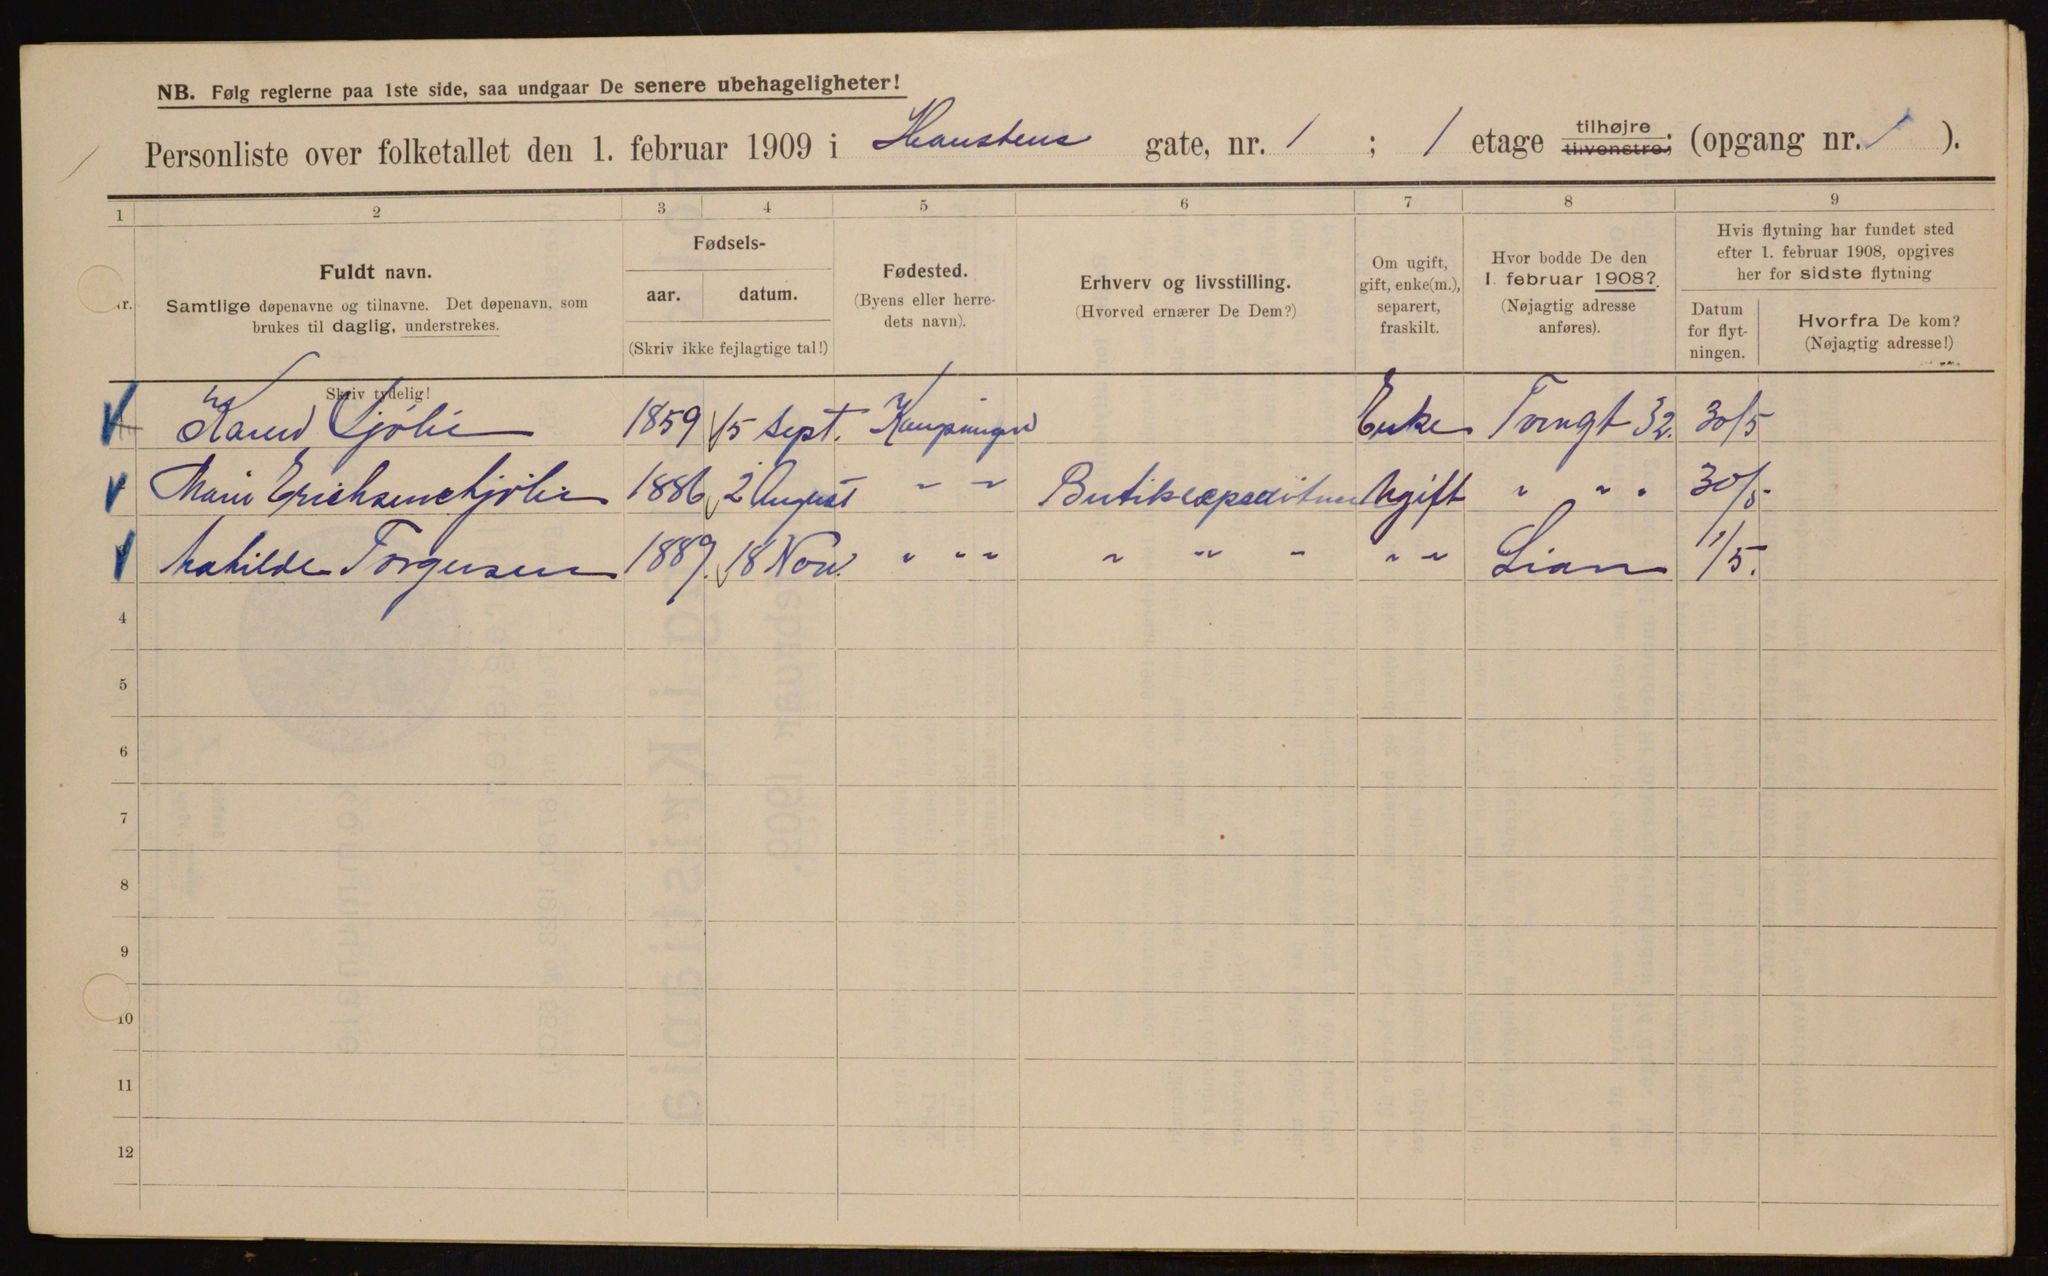 NB. Følg reglerne paa 1ste side, saa undgaar De senere ubehageligheter!
Personliste over folketallet den 1. februar 1909 i Hanstens gate, nr. 1 ; 1 etage tilhøjre tilvenstre; (opgang nr. 1 ).
1 2 3 4 5 6 7 8 9
Nr.
Fuldt navn.
Samtlige døpenavne og tilnavne. Det døpenavn, som
brukes til daglig, understrekes.
Skriv tydelig!
Fødsels-
aar. datum.
(Skriv ikke fejlagtige tal!)
Fødested.
(Byens eller herre-
dets navn).
Erhverv og livsstilling.
(Hvorved ernærer De Dem?)
Om ugift,
gift, enke(m.),
separert,
fraskilt.
Hvor bodde De den
1. februar 1908?
(Nøjagtig adresse
anføres).
Hvis flytning har fundet sted
efter 1. februar 1908, opgives
her for sidste flytning
Datum
for flyt-
ningen.
Hvorfra De kom?
(Nøjagtig adresse!)
Karen 1859 15 Sept. Enke Torvgt 32. 30/5
Marie 1886 2 August " " Ugift " " " 30/5
Mathilde Torgersen 1889. 18 Nov. " " " " " " " " Lian 1/5.
4
5
6
7
8
9
10
11
12